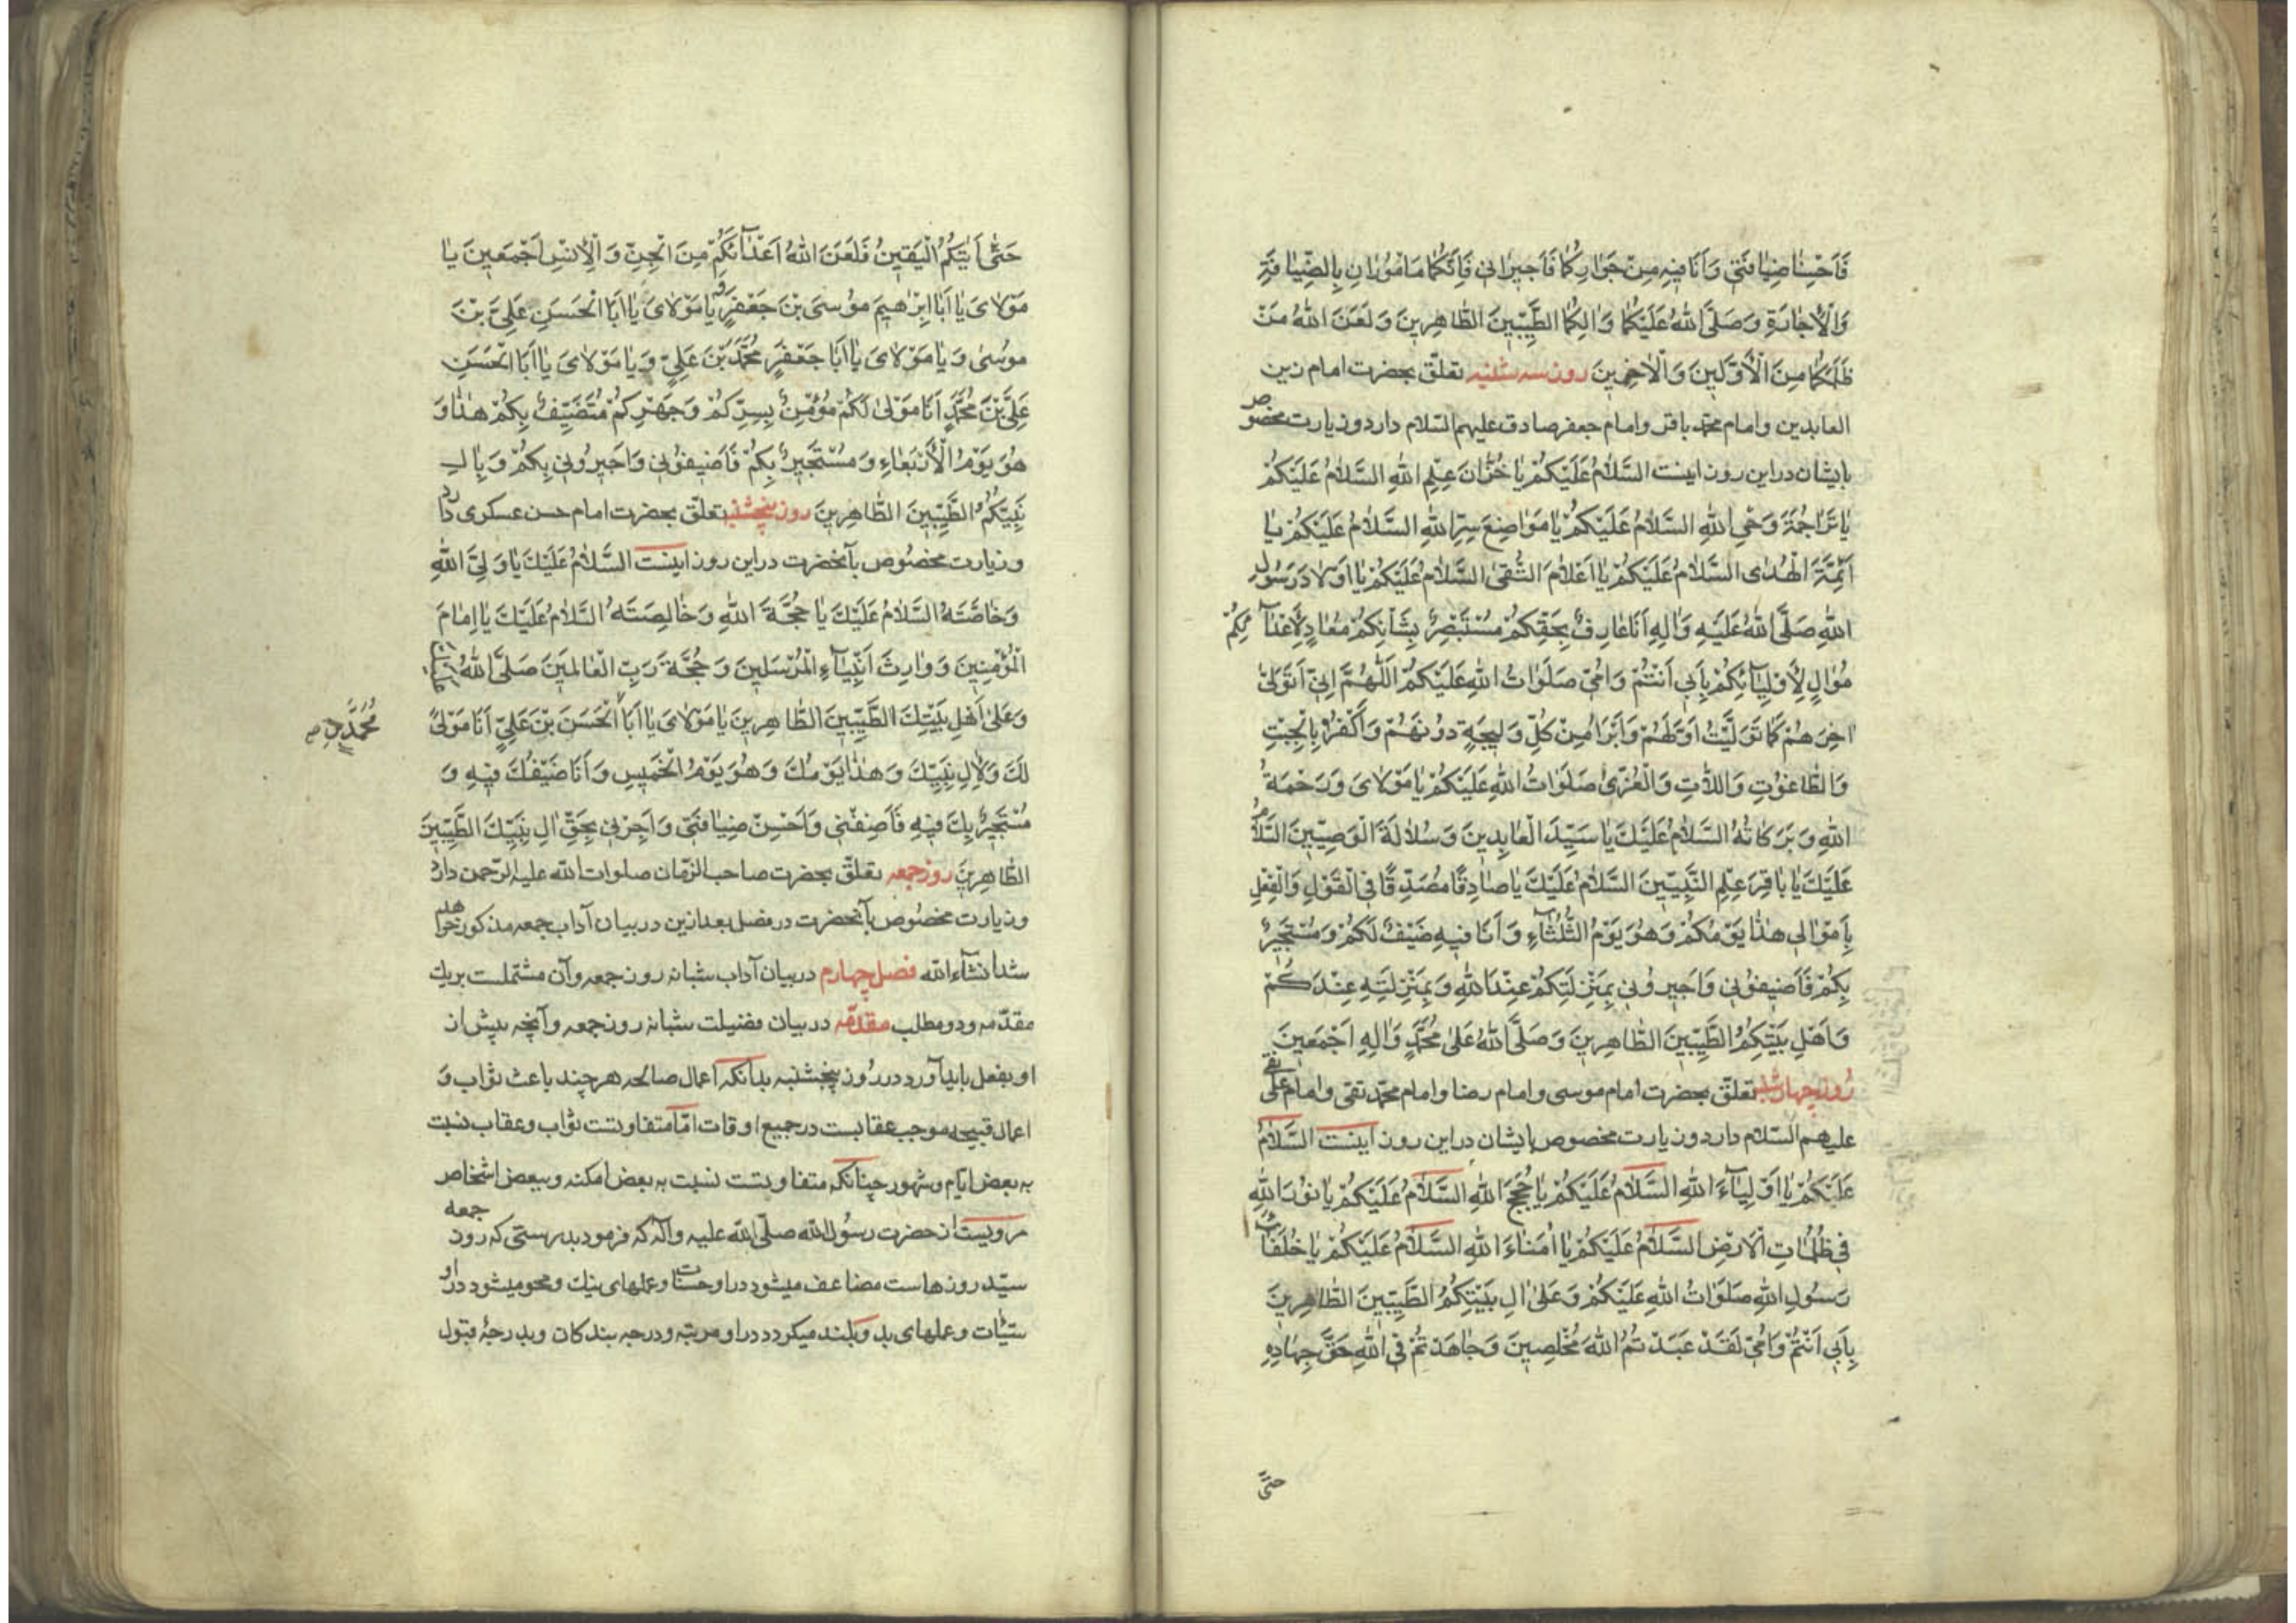 فَاَحْسِنٰا ضِيٰافَتي وَ اَنَا فيٖهِ مِنْ جَوٰارِكُمٰا فَاَجيرٰاني فَاِنَّكُمٰا مَاْمُوُرٰانِ بِالضِّيٰافَةِ
وَالْاِجٰارَةِ وَصَلَّى اللّٰهُ عَلَيْكُمٰا وَ اٰلِكُمَا الطَّيِّبيٖنَ الطّٰاهِريٖنَ وَ لَعَنَ اللّٰهُ مَنْ
ظَلَمَكُمٰا مِنَ الْاَوَّليٖنَ وَالْاٰخِريٖنَ روز سه شنبه تعلّق بحضرت امام زين
العابدين و امام محمّد باقر و امام جعفر صادق عليهم السّلام دارد و زيارت مخصوص
بايشان در اين روز اينست السَّلٰامُ عَلَيْكُمْ يٰا خُزّٰانَ عِلْمِ اللّٰهِ السَّلٰامُ عَلَيْكُمْ
يٰا تَرٰاجُمَةَ وَحْيِ اللّٰهِ السَّلٰامُ عَلَيْكُمْ يٰا مَوٰاضِعَ سِرِّ اللّٰهِ السَّلٰامُ عَلَيْكُمْ يٰا
اَئِمَّةَ الْهُدٰى السَّلٰامُ عَلَيْكُمْ يٰا اَعْلٰامَ التُّقىٰ السَّلٰامُ عَلَيْكُمْ يٰا اَوْلٰادَ رَسُولِ
اللّٰهِ صَلَّى اللّٰهُ عَلَيْهِ وَاٰلِهِ اَنَا عٰارِفٌ بِحَقِّكُمْ مُسْتَبْصِرٌ بِشَاْنِكُمْ مُعٰادٍ لِاَعْدٰآئِكُمْ
مُوٰالٍ لِاَوْلِيٰآئِكُمْ بِاَبي اَنْتُمْ وَ اُمّي صَلَوٰاتُ اللّٰهِ عَلَيْكُمْ اَللّٰهُمَّ اِنّي اَتَوَلّىٰ
اٰخِرَهُمْ كَمٰا تَوَلَّيْتُ اَوَّلَهُمْ وَ اَبْرَاُ مِنْ كُلِّ وَليجَةٍ دُونَهُمْ وَ اَكْفُرُ بِالْجِبْتِ
وَ الطّٰاغُوتِ وَ اللّاٰتِ وَ الْعُزّىٰ صَلَوٰاتُ اللّٰهِ عَلَيْكُمْ يٰا مَوٰلٰايَ وَ رَحْمَةُ
اللّٰهِ وَ بَرَكٰاتُهُ السَّلٰامُ عَلَيْكَ يٰا سَيِّدَ الْعٰابِديٖنَ وَ سُلٰالَةَ الْوَصِيّيٖنَ السَّلٰامُ
عَلَيْكَ يٰا بٰاقِرَ عِلْمِ النَّبِيّيٖنَ السَّلٰامُ عَلَيْكَ يٰا صٰادِقًا مُصَدِّقًا فِي الْقَوْلِ وَ الْفِعْلِ
يٰا مَوٰالِي هٰذٰا يَوْمُكُمْ وَ هُوَ يَوْمُ الثُّلٰثٰآءِ وَ اَنَا فيٖهِ ضَيْفٌ لَكُمْ وَ مُسْتَجيٖرٌ
بِكُمْ فَاَضيٖفُوني وَ اَجيٖرُوني بِمَنْزِلَتِكُمْ عِنْدَ اللّٰهِ وَ بِمَنْزِلَتِهِ عِنْدَكُمْ
وَ اَهْلِ بَيْتِكُمُ الطَّيِّبيٖنَ الطّٰاهِريٖنَ وَ صَلَّى اللّٰهُ عَلىٰ مُحَمَّدٍ وَ اٰلِهِ اَجْمَعيٖنَ
روز چهارشنبه تعلّق بحضرت امام موسى و امام رضا و امام محمّد تقى و امام على نقى
عليهم السّلام دارد و زيارت مخصوص بايشان در اين روز اينست السَّلٰامُ
عَلَيْكُمْ يٰا اَوْلِيٰآءَ اللّٰهِ السَّلٰامُ عَلَيْكُمْ يٰا حُجَجَ اللّٰهِ السَّلٰامُ عَلَيْكُمْ يٰا نُورَ اللّٰهِ
في ظُلُمٰاتِ الْاَرْضِ السَّلٰامُ عَلَيْكُمْ يٰا اُمَنٰاءَ اللّٰهِ السَّلٰامُ عَلَيْكُمْ يٰا خُلَفٰآءَ
رَسُولِ اللّٰهِ صَلَوٰاتُ اللّٰهِ عَلَيْكُمْ وَ عَلىٰ اٰلِ بَيْتِكُمُ الطَّيِّبيٖنَ الطّٰاهِريٖنَ
بِاَبي اَنْتُمْ وَ اُمّي لَقَدْ عَبَدْتُمُ اللّٰهَ مُخْلِصيٖنَ وَ جٰاهَدْتُمْ فِي اللّٰهِ حَقَّ جِهٰادِهِ
حتّى
حَتّٰى اَتٰيكُمُ الْيَقيٖنُ فَلَعَنَ اللّٰهُ اَعْدٰآئَكُمْ مِنَ الْجِنِّ وَ الْاِنْسِ اَجْمَعيٖنَ يٰا
مَوْلٰايَ يٰا اَبٰا اِبْرٰهيٖمَ مُوسَى بْنَ جَعْفَرٍ وَ يٰا مَوْلٰايَ يٰا اَبَا الْحَسَنِ عَلِيَّ بْنَ
مُوسىٰ وَ يٰا مَوْلٰايَ يٰا اَبٰا جَعْفَرٍ مُحَمَّدَ بْنَ عَلِيٍّ وَ يٰا مَوْلٰايَ يٰا اَبَا الْحَسَنِ
عَلِيَّ بْنَ مُحَمَّدٍ اَنَا مَوْلىٰ لَكُمْ مُؤْمِنٌ بِسِرِّكُمْ وَ جَهْرِكُمْ مُتَضَيِّفٌ بِكُمْ هٰذٰا وَ
هُوَ يَوْمُ الْاَرْبَعٰاءِ وَ مُسْتَجيٖرٌ بِكُمْ فَاَضيٖفُوني وَ اَجيٖرُوني بِكُمْ وَ بِاٰلِ
نَبِيِّكُمُ الطَّيِّبيٖنَ الطّٰاهِريٖنَ روز پنجشنبه تعلّق بحضرت امام حسن عسكرى دارد
و زيارت مخصوص بآنحضرت در اين روز اينست السَّلٰامُ عَلَيْكَ يٰا وَلِيَّ اللّٰهِ
وَ خٰاصَّتَهُ السَّلٰامُ عَلَيْكَ يٰا حُجَّةَ اللّٰهِ وَ خٰالِصَتَهُ السَّلٰامُ عَلَيْكَ يٰا اِمٰامَ
الْمُؤْمِنيٖنَ وَ وٰارِثَ اَنْبِيٰآءِ الْمُرْسَليٖنَ وَ حُجَّةَ رَبِّ الْعٰالَميٖنَ صَلَّى اللّٰهُ
وَ عَلىٰ اَهْلِ بَيْتِكَ الطَّيِّبيٖنَ الطّٰاهِريٖنَ يٰا مَوْلٰايَ يٰا اَبَا الْحَسَنَ بْنَ عَلِيٍّ اَنَا مَوْلىً
مُحَمَّدٍ
لَكَ وَ لِاٰلِ نَبِيِّكَ وَ هٰذٰا يَوْمُكَ وَ هُوَ يَوْمُ الْخَميٖسِ وَ اَنَا ضَيْفُكَ فيٖهِ وَ
مُسْتَجيٖرٌ بِكَ فيٖهِ فَاَضِفْنِي وَ اَحْسِنْ ضِيٰافَتِي وَ اَجِرْني بِحَقِّ اٰلِ نَبِيِّكَ الطَّيِّبيٖنَ
الطّٰاهِريٖنَ روز جمعه تعلّق بحضرت صاحب الزّمان صلوات اللّه عليه الرّحمن دارد
و زيارت مخصوص بآنحضرت در فصل بعد ازين در بيان آداب جمعه مذكور خواهد
شد انشآء اللّه فصل چهارم در بيان آداب شبانه روز جمعه و آن مشتملست بر يك
مقدّمه و دو مطلب مقدّمه در بيان فضيلت شبانه روز جمعه و آنچه پيش از
او بفعل بايد آورد در روز پنجشنبه بدانكه اعمال صالحه هر چند باعث ثواب و
اعمال قبيحه موجب عقابست در جميع اوقات امّا متفاوتست ثواب و عقاب نسبت
به بعض ايّام و شهور چنانكه متفاوتست نسبت به بعض امكنه و ببعض اشخاص
مرويست از حضرت رسول اللّه صلّى اللّه عليه و آله كه فرمود بدرستى كه روز جمعه
سيّد روزهاست مضاعف ميشود در او حسنات و عملهاى نيك و محو ميشود در او
سيّئات و عملهاى بد و بلند ميكردد در او مرتبه و درجه بندكان و بدرجۀ قبول